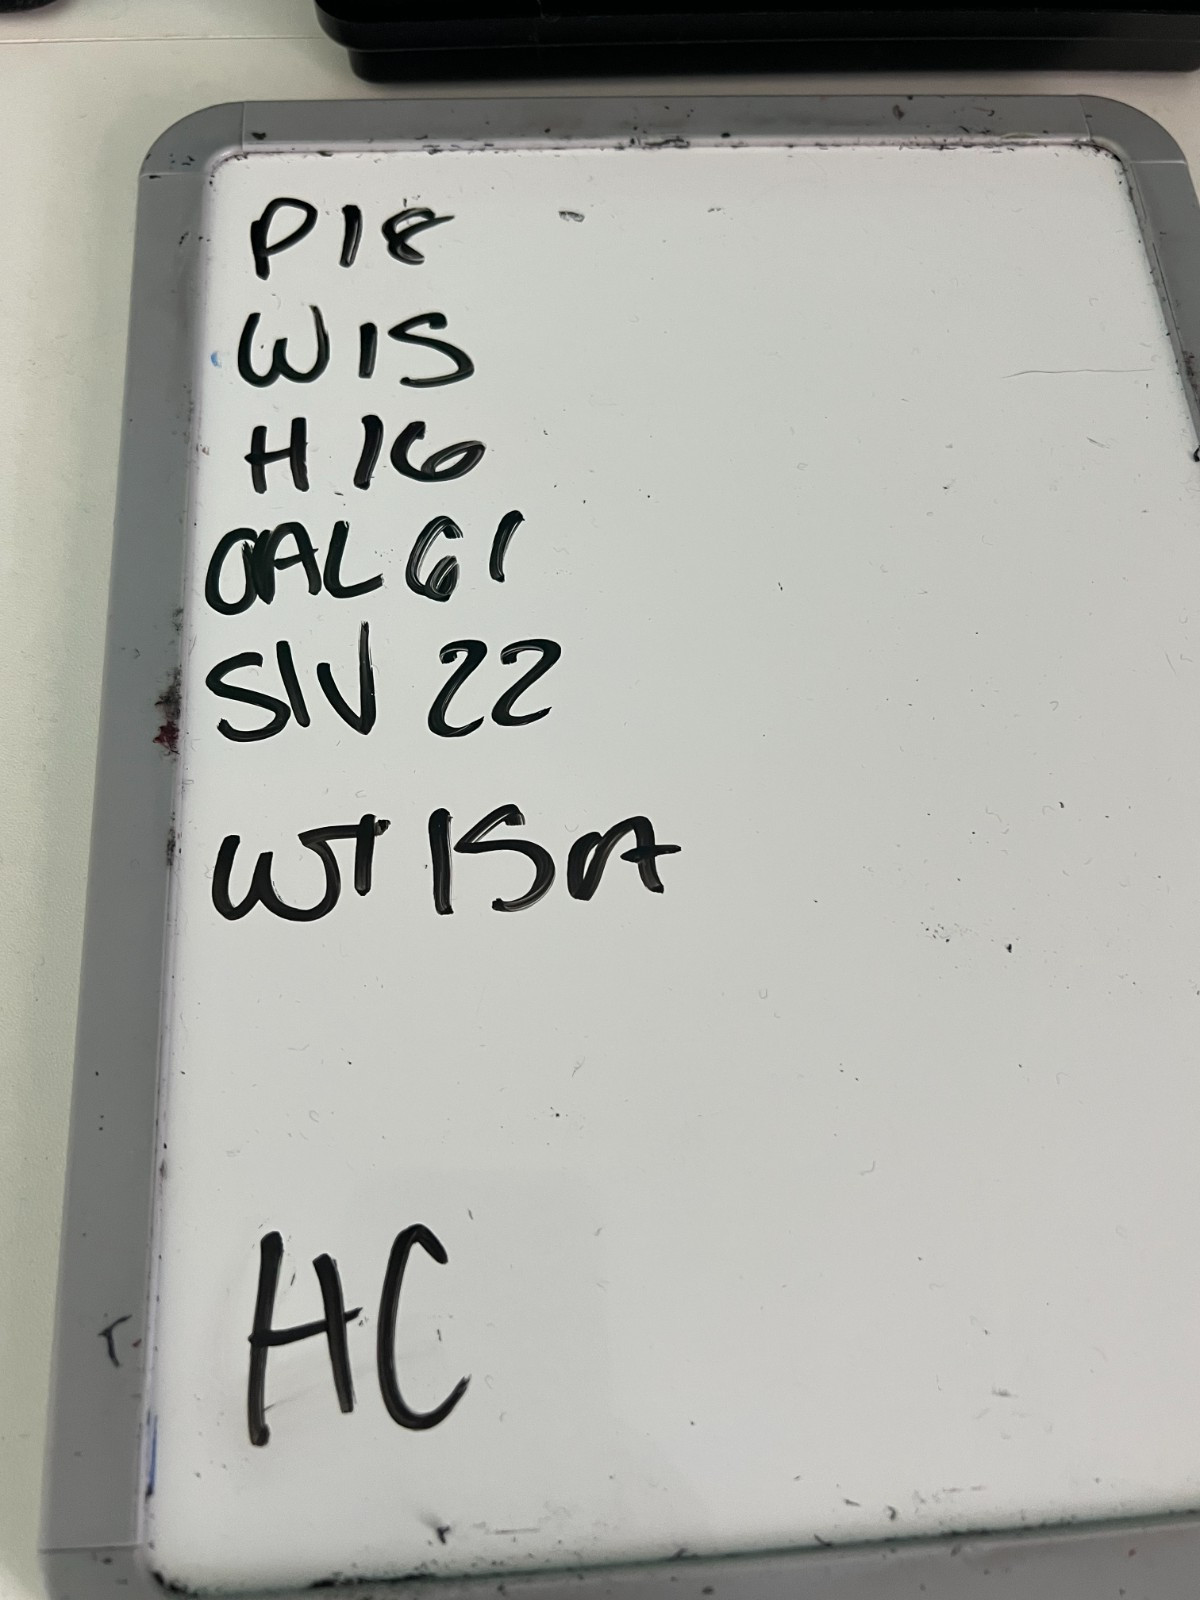 P18
W15
H16
OAL 61
SLV 22
WT 15oA
HC